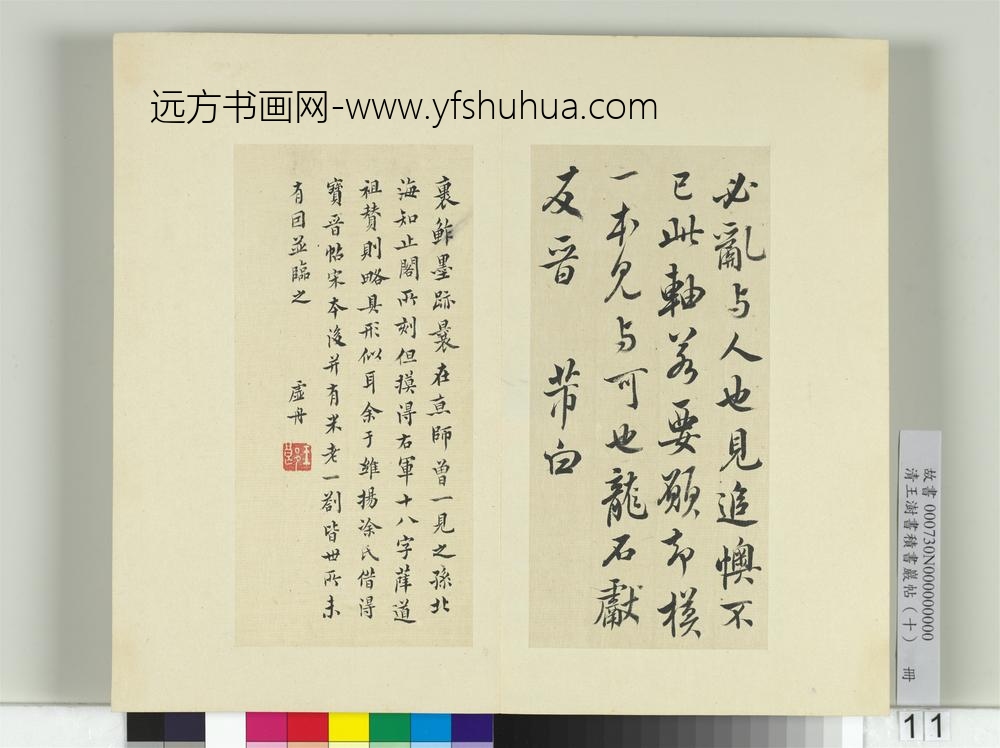 远方书画网-www.yfshuhua.com
必亂与人也見追懊不
已此軸若要願却模
一本見与可也龍石獻
友晉 芾白
裹鮓墨跡曩在京師曾一見之孫北
海知止閣所刻但摸得右軍十八字薛道
祖贊則略具形似耳余于維揚涂氏借得
寶晉帖宋本後并有米老一劄皆世所未
有因並臨之 虛舟
故書000730N000000000
清王澍書積書巖帖(十) 冊
11